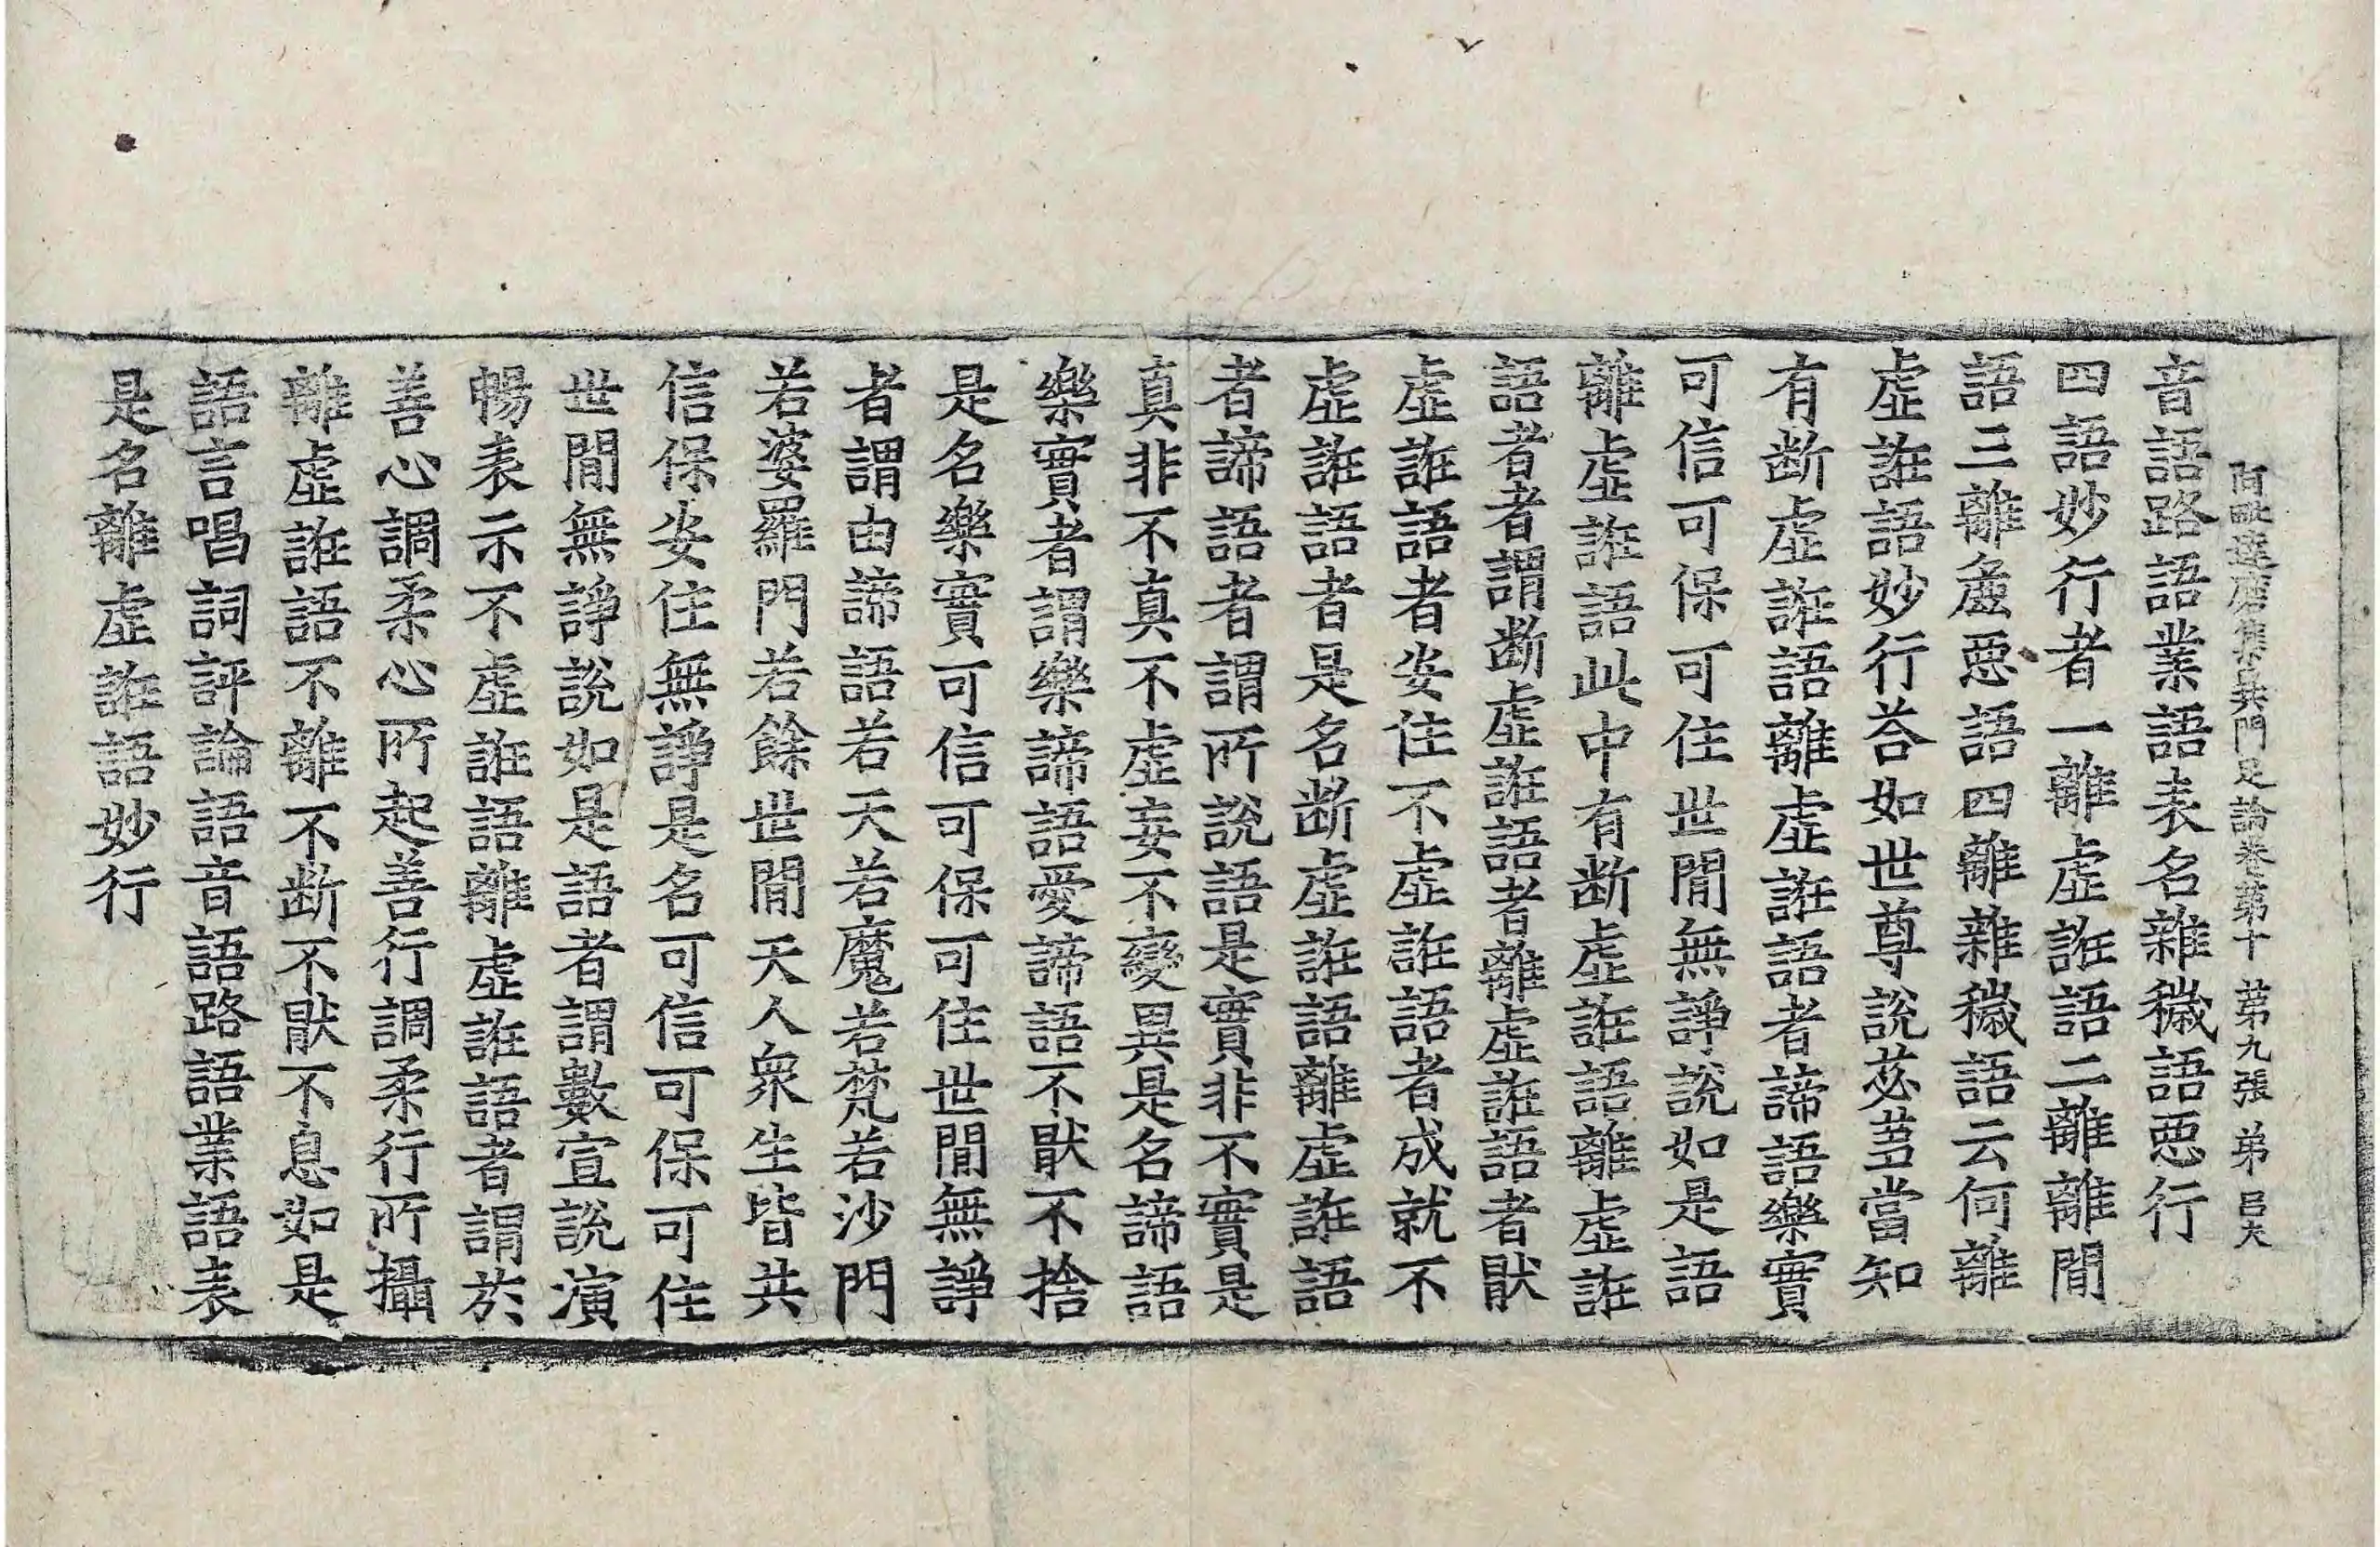 阿毗達磨集異門足論卷第十 第九張 弟 吕夫
音語路語業語表名雜穢語惡行
四語妙行者一離虛誑語二離離間
語三離麁惡語四離雜穢語云何離
虛誑語妙行荅如世尊說苾蒭當知
有断虛誑語離虛誑語者諦語樂實
可信可保可住世間無諍說如是語
離虛誑語此中有断虛誑語離虛誑
語者者謂断虛誑語者離虛誑語者猒
虛誑語者安住不虛誑語者成就不
虛誑語者是名断虛誑語離虛誑語
者諦語者謂所說語是實非不實是
真非不真不虛妄不變異是名諦語
樂實者謂樂諦語愛諦語不猒不捨
是名樂實可信可保可住世間無諍
者謂由諦語若天若魔若梵若沙門
若婆羅門若餘世間天人衆生皆共
信保安住無諍是名可信可保可住
世間無諍說如是語者謂數宣說演
暢表示不虛誑語離虛誑語者謂於
善心調柔心所起善行調柔行所攝
離虛誑語不離不断不猒不息如是
語言唱詞評論語音語路語業語表
是名離虛誑語妙行